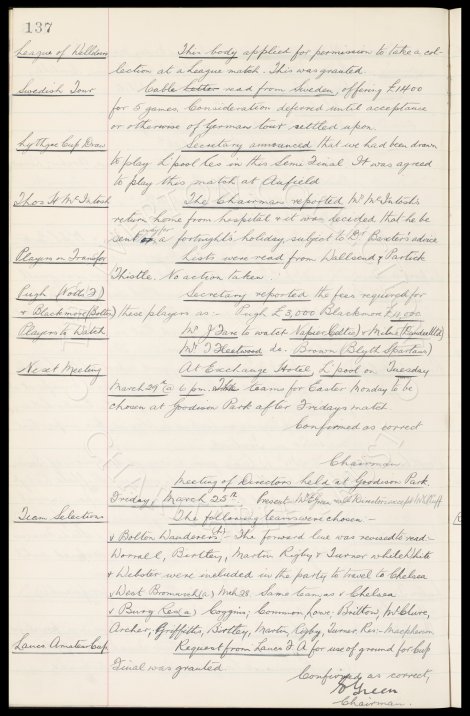 137
League of Welldoers This body applied for permission to take a col-
lection at a League match. This was granted.
Swedish Tour Cable letter read from Sweden, offering £1400
for 5 games. Consideration deferred until acceptance
or otherwise of German tour settled upon.
Lythgoe Cup Draw Secretary announced that we had been drawn
to play L'pool Res in this Semi Final. It was agreed
to play this match at Anfield
Thos H McIntosh The Chairman reported Mr McIntosh's
return home from hospital & it was decided that he be
sent away for a fortnight's holiday, subject to Dr Baxter's advice
Players on Transfer Lists were read from Wallsend & Partick
Thistle. No action taken.
Pugh (Notts F) Secretary reported the fees required for
& Blackmore (Bolton) these players as :- Pugh £3,000 Blackmore £4,000.
Players to Watch Mr J Fare to watch Napier (Celtic) & Miles
Mr T Fleetwood do. Brown (Blyth Spartans)
Next Meeting At Exchange Hotel, L'pool on Tuesday
March 29th @ 6 pm. The teams for Easter Monday to be
chosen at Goodison Park after Fridays match
Confirmed as correct
Chairman.
Meeting of Directors held at Goodison Park
Friday, March 25th. Present Mr Green and Directors except
Team Selections The following teams were chosen :-
v Bolton Wanderers The forward line was revised to read -
Worrall, Birtley, Martin Rigby & Turner while White
& Webster were included in the party to travel to Chelsea
v West Bromwich (a) Mch 28. Same team as v Chelsea
v Bury Res (a) Coggins; Common, Lowe; Britton, McClure,
Archer; Griffiths, Birtley, Martin, Rigby, Turner Res:- Macpherson
Lancs Amateur Cup Request from Lancs F A for use of ground for Cup
Final was granted.
Confirmed as correct,
Green
Chairman.